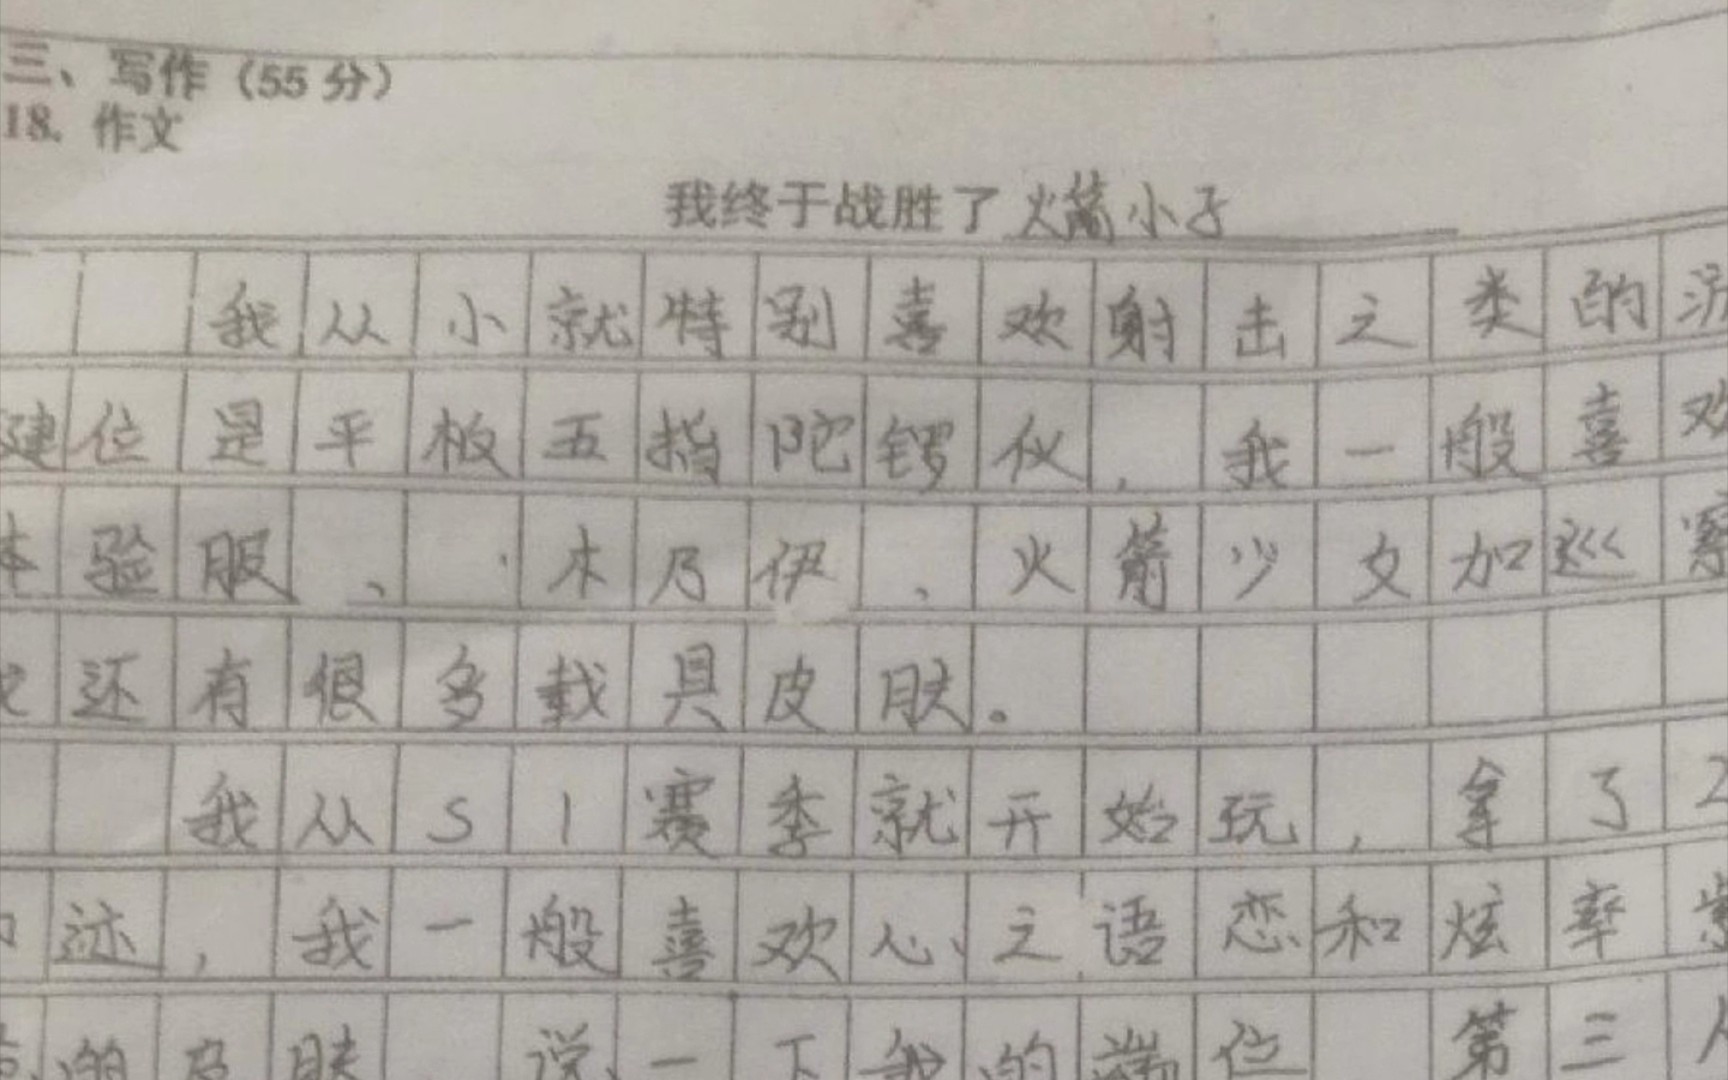 三、写作（55分）
18. 作文
我终于战胜了火箭小子
我从小就特别喜欢射击之类的游
建位是平板五指陀锣仪，我一般喜欢
体验服、木乃伊、火箭少女加巡察
还有很多载具皮肤。
我从S1赛季就开始玩，拿了2
印迹，我一般喜欢心之语恋和炫率紫
的皮肤 说一下我的端位 第三人